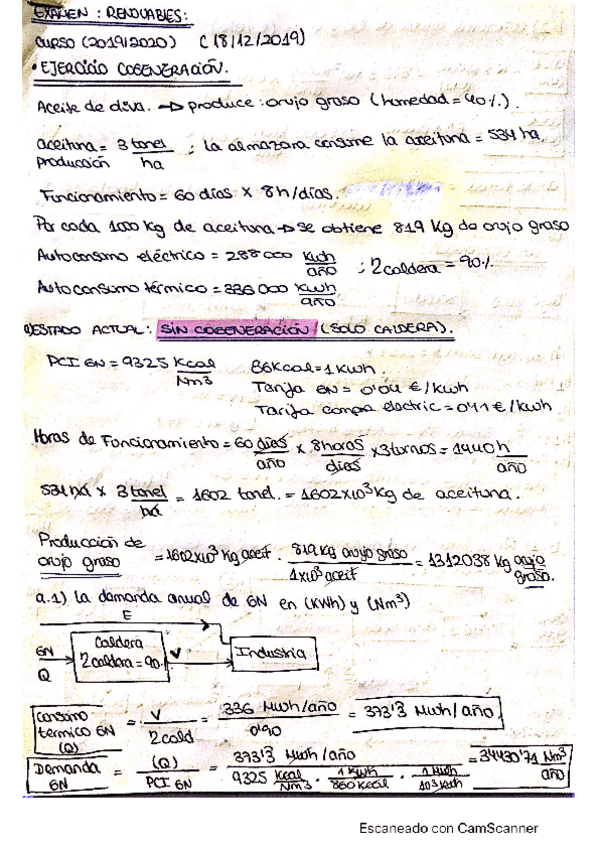 EXAMEN : RENOVABLES:
CURSO (2019/2020) (18/12/2019)
• EJERCICIO COGENERACIÓN.
Aceite de oliva. → produce : orujo graso (humedad = 40%).
aceituna producción = 3 tonel/ha ; la almazara consume la aceituna = 534 ha
Funcionamiento = 60 días x 8h/días.
Por cada 1000 kg de aceituna → se obtiene 819 kg de orujo graso
Autoconsumo eléctrico = 288000 kWh/año ; ηcaldera = 90%
Autoconsumo térmico = 336 000 kWh/año
a) ESTADO ACTUAL: SIN COGENERACIÓN (SOLO CALDERA).
PCI GN = 9325 Kcal/Nm3 860Kcal = 1 kWh.
Tarifa GN = 0'04 €/kWh
Tarifa compra electric = 0'11 €/kWh
Horas de Funcionamiento = 60 días/año x 8horas/días x 3 turnos = 1440 h/año
534 ha x 3 tonel/ha = 1602 tonel. = 1602x10³ Kg de aceituna.
Producción de orujo graso = 1602x10³ kg aceit · 819 kg orujo graso/1x10³ aceit = 1312038 kg orujo graso.
a.1) la demanda anual de GN en (kWh) y (Nm³)
E
GN Q Caldera ηcaldera = 90% V Industria
Consumo termico GN (Q) = V/ηcald = 336 Mwh/año/0'90 = 373'3 Mwh/año.
Demanda GN = (Q)/PCI GN = 373'3 Mwh/año/9325 Kcal/Nm3 · 1 kwh/860kcal · 1 Mwh/10³ kwh = 34430'71 Nm³/año
Escaneado con CamScanner